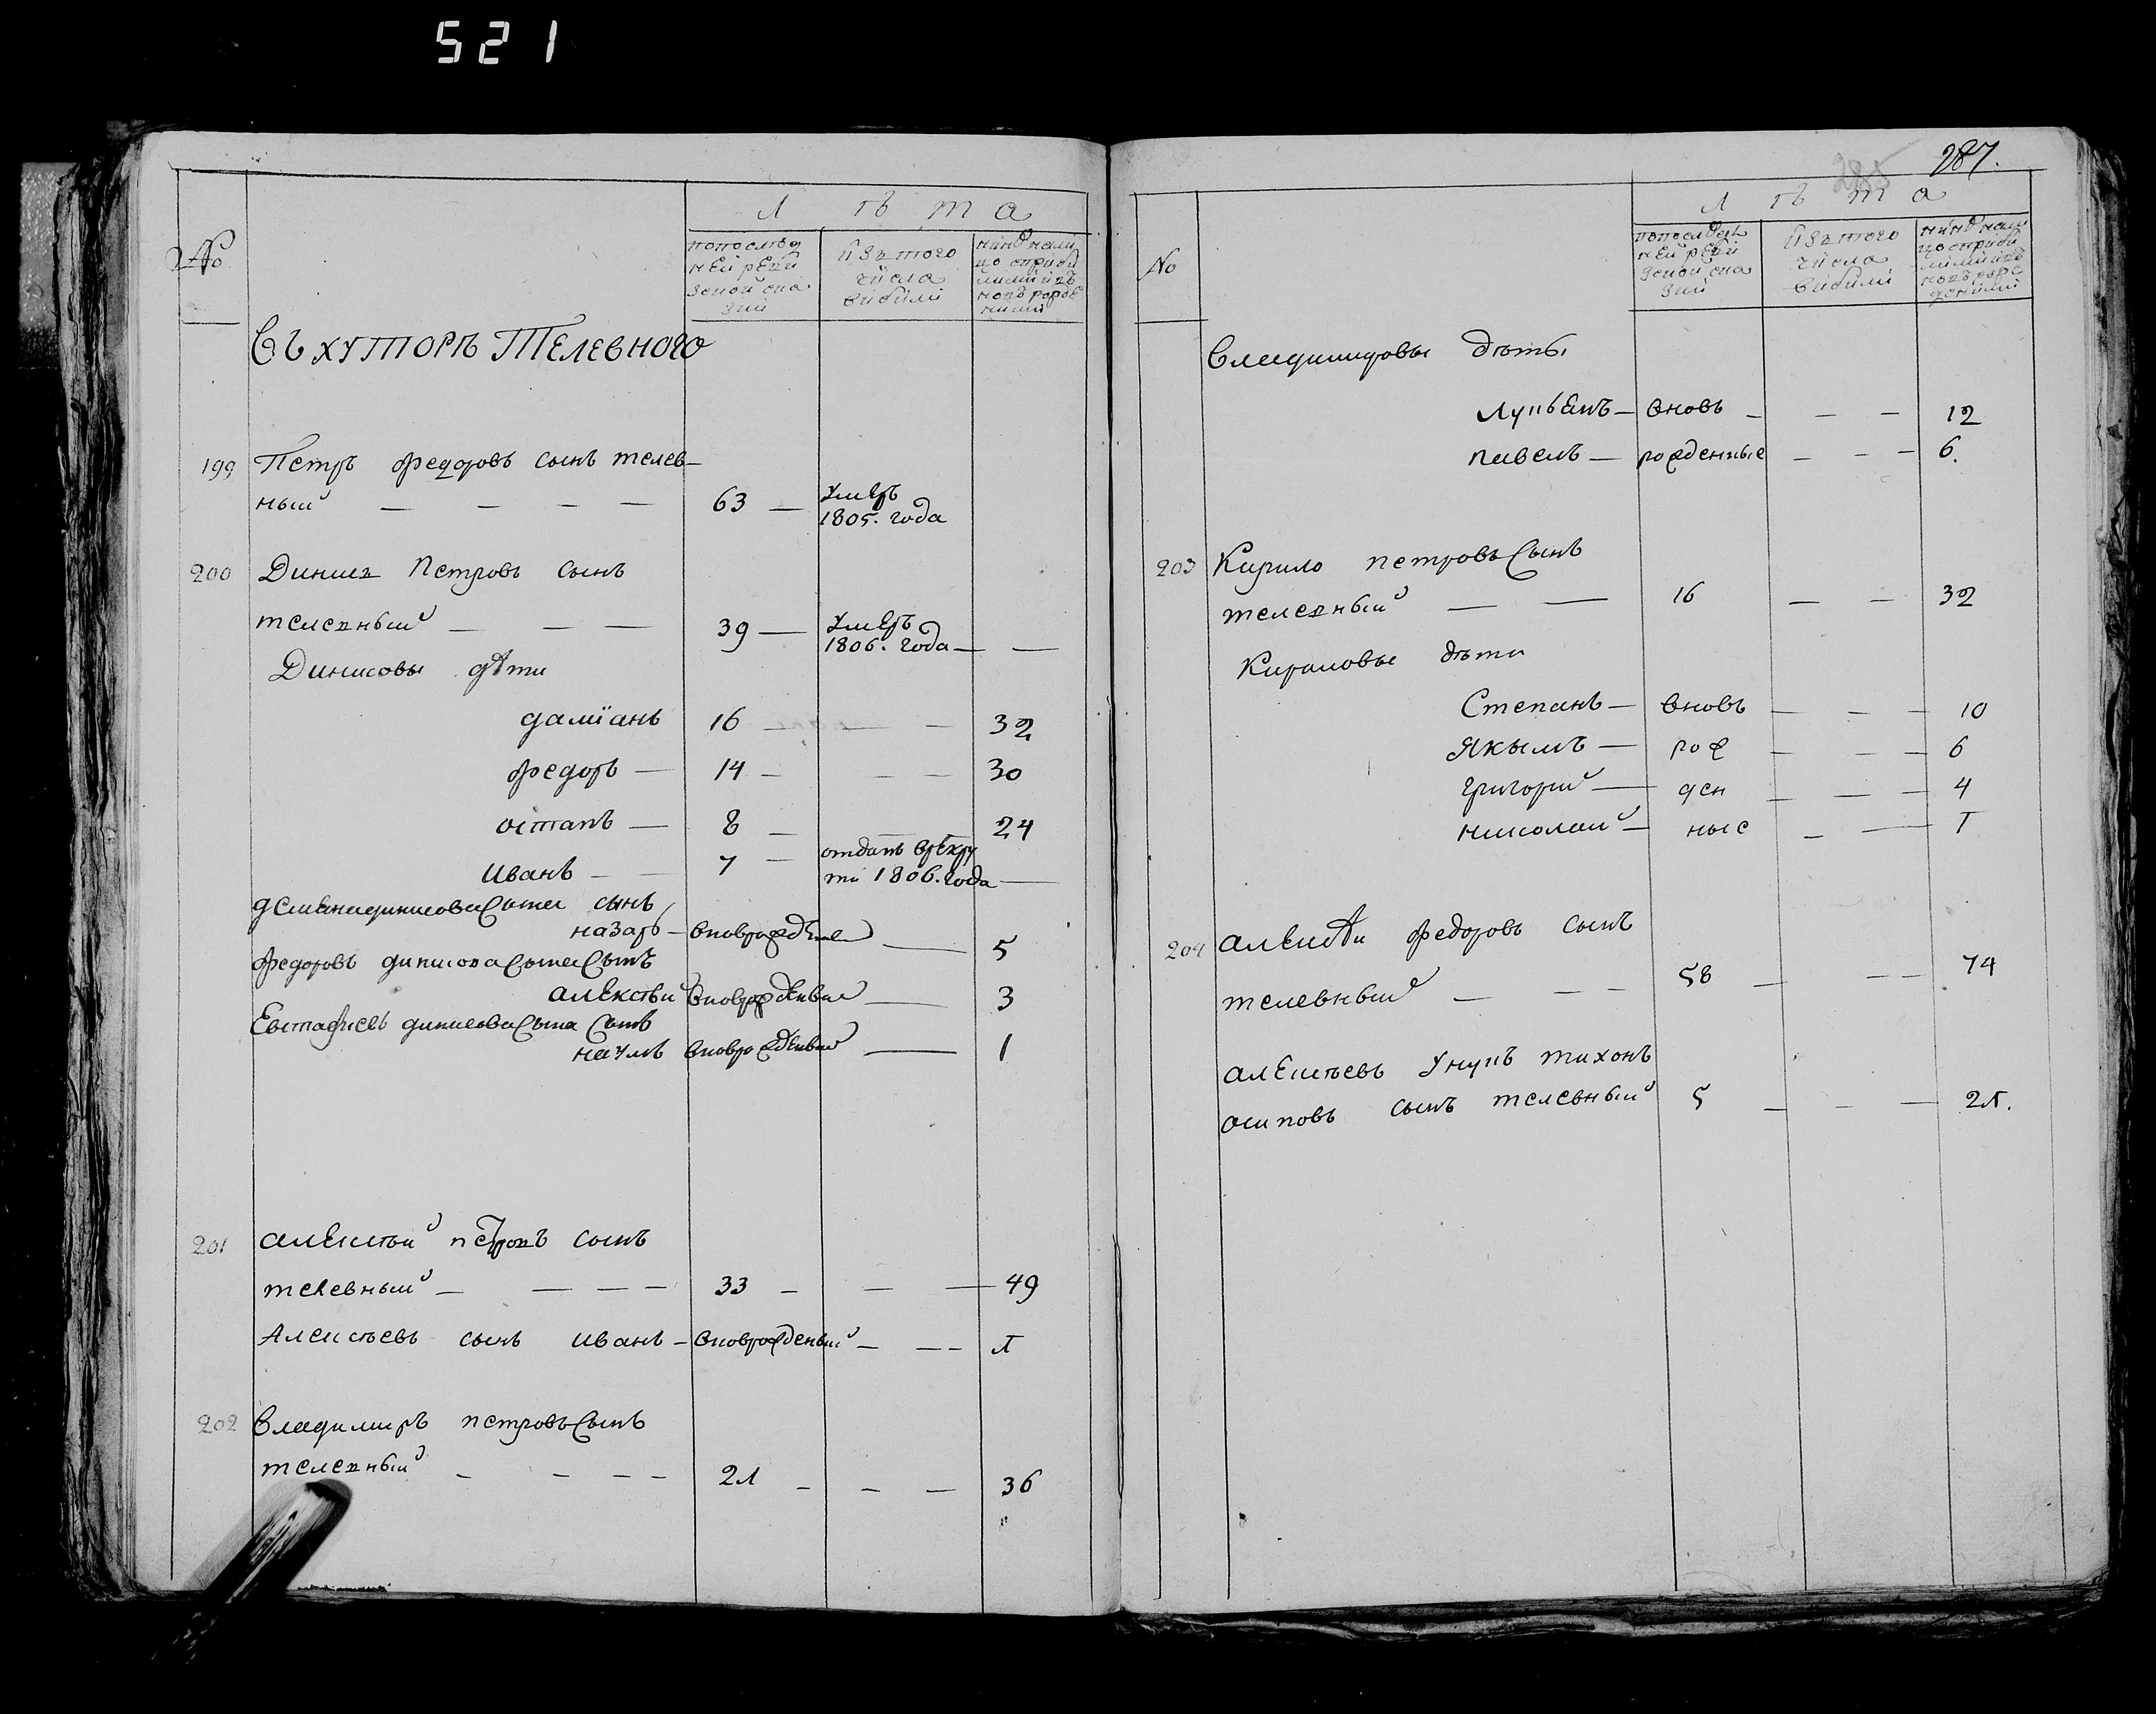 521
№
Л ѣ т а
попослѣд
ней реви
зской ска
зии
изъ того
числа
вибили
нинѣ нали
цо спри
вноврожде
Въ хуторѣ Телевного
199 Петръ федоровъ сынъ телев–
ный — — — — 63 — умеръ
1805. года
200 Динисъ Петровъ сынъ
телевный — — — 39 — умеръ
1806. года — —
Динисовы дѣти
даміанъ 16 — — — 32
федоръ — 14 — — — 30
остапъ — 8 — — 24
Иванъ — — 7 — отданъ врекру
ти 1806. года —
демянадинисовасына сынъ
назаръ — вноврожден — 5
федоровъ динисовасынасынъ
алексѣй вноврожденный — 3
Евстафиевъ динисовасына сынъ
наумъ вноврожденный — 1
201 алексѣй петровъ сынъ
телевный — — — — 33 — — — 49
Алексѣевъ сынъ иванъ — вноврожденый — — — 1
202 владимиръ петровъ сынъ
телевный — — — — 21 — — — 36
285
287.
№
Л ѣ т а
попослѣд
ней реви
зской ска
зии
изъ того
числа
вибили
нинѣ нали
цо спри
владимировы дѣты
Лупъянъ — вновь — — — 12
павелъ — рожденные — — — 6.
203 Кирило петровъ сынъ
телевный — — 16 — — 32
Кириловы дѣти
Степанъ — вновь — — — 10
Якымъ — рож — — — 6
григорий — ден — — — 4
николай — ные — — 1
204 алексѣй федоровъ сынъ
телевный — — — 58 — — — 74
алексѣевъ унукъ тихонъ
осиповъ сынъ телевный 5 — — — 21.